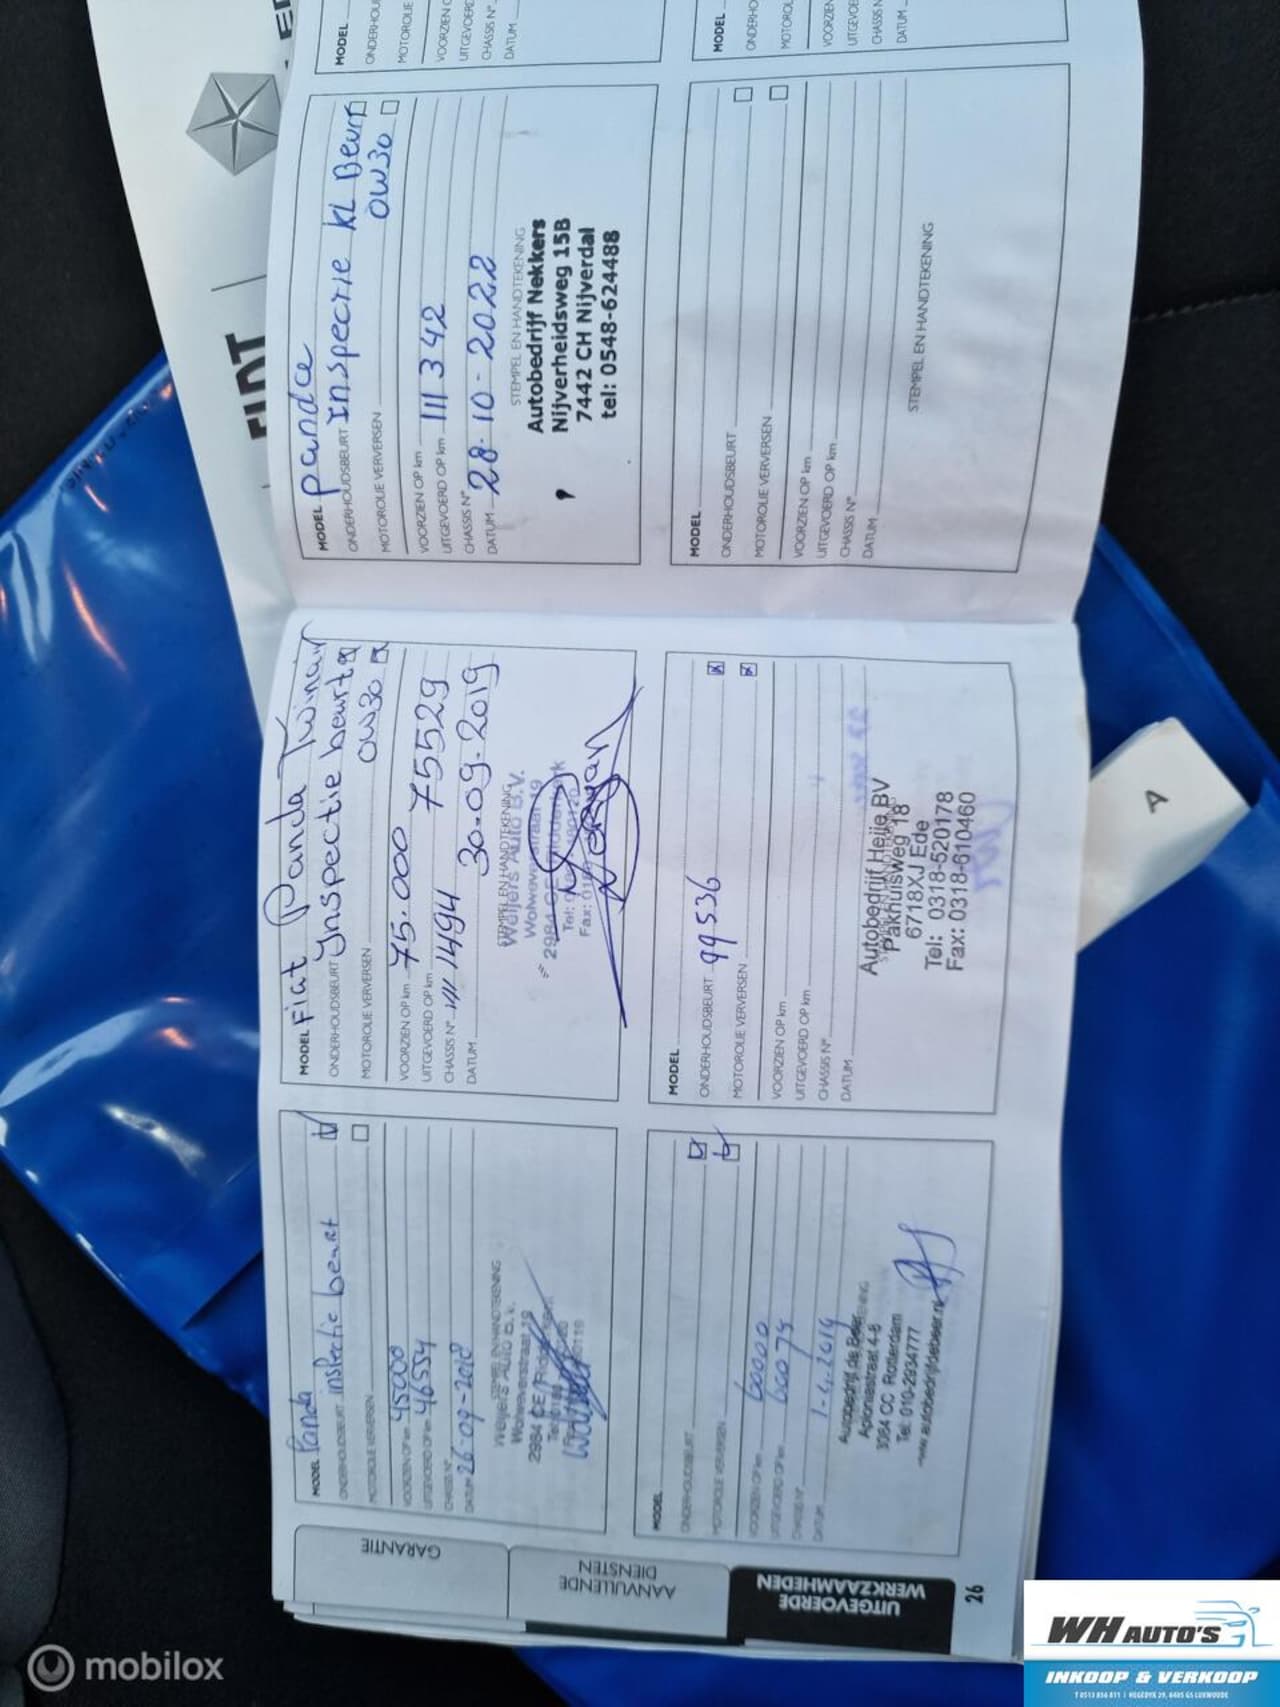 MODEL Panda
ONDERHOUDSBEURT inspectie beurt
MOTOROLIE VERVERSEN
VOORZIEN OP km 45000
UITGEVOERD OP km 46554
CHASSIS N°
DATUM 26-09-2018
STEMPEL EN HANDTEKENING
Weijers Auto B.V.
Wolweverstraat 19
2984
MODEL
ONDERHOUDSBEURT
MOTOROLIE VERVERSEN
VOORZIEN OP km 60000
UITGEVOERD OP km 66075
CHASSIS N°
DATUM 1-4-2019
Autobedrijf de Beer
Aploniastraat 4-8
3084 CC Rotterdam
Tel. 010-2934777
www.autobedrijfdebeer.nl
MODEL Fiat Panda Twinair
ONDERHOUDSBEURT Inspectie beurt
MOTOROLIE VERVERSEN 0W30
VOORZIEN OP km 75.000
UITGEVOERD OP km 75529
CHASSIS N° 1494
DATUM 30-09-2019
STEMPEL EN HANDTEKENING
Weijers Auto B.V.
Wolweverstraat 19
2984
Tel:
Fax:
MODEL
ONDERHOUDSBEURT 99536
MOTOROLIE VERVERSEN
VOORZIEN OP km
UITGEVOERD OP km
CHASSIS N°
DATUM
Autobedrijf Heije BV
Pakhuisweg 18
6718XJ Ede
Tel: 0318-520178
Fax: 0318-610460
MODEL pandae
ONDERHOUDSBEURT Inspectie KL Beurt
MOTOROLIE VERVERSEN 0W30
VOORZIEN OP km
UITGEVOERD OP km 111342
CHASSIS N°
DATUM 28-10-2022
STEMPEL EN HANDTEKENING
Autobedrijf Nekkers
Nijverheidsweg 15B
7442 CH Nijverdal
tel: 0548-624488
MODEL
ONDERHOUDSBEURT
MOTOROLIE VERVERSEN
VOORZIEN OP km
UITGEVOERD OP km
CHASSIS N°
DATUM
STEMPEL EN HANDTEKENING
MODEL
VOORZIEN
UITGEVOERD
CHASSIS N°
DATUM
MODEL
DATUM
GARANTIE
AANVULLENDE
DIENSTEN
UITGEVOERDE
WERKZAAMHEDEN
26
A
mobilox
WH AUTO'S
INKOOP & VERKOOP
T 0513 856 811 | HEGEDYK 29, 8405 GS LUXWOUDE